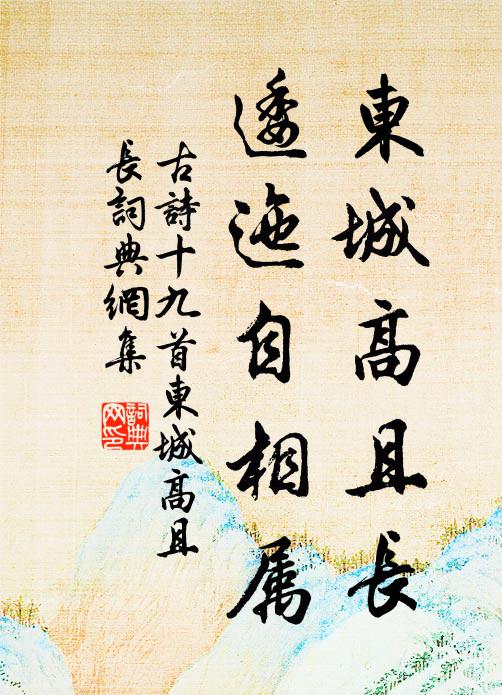 東城高且長
逶迤自相属
古詩十九首東城高且
長詞典網集
詞典
网印